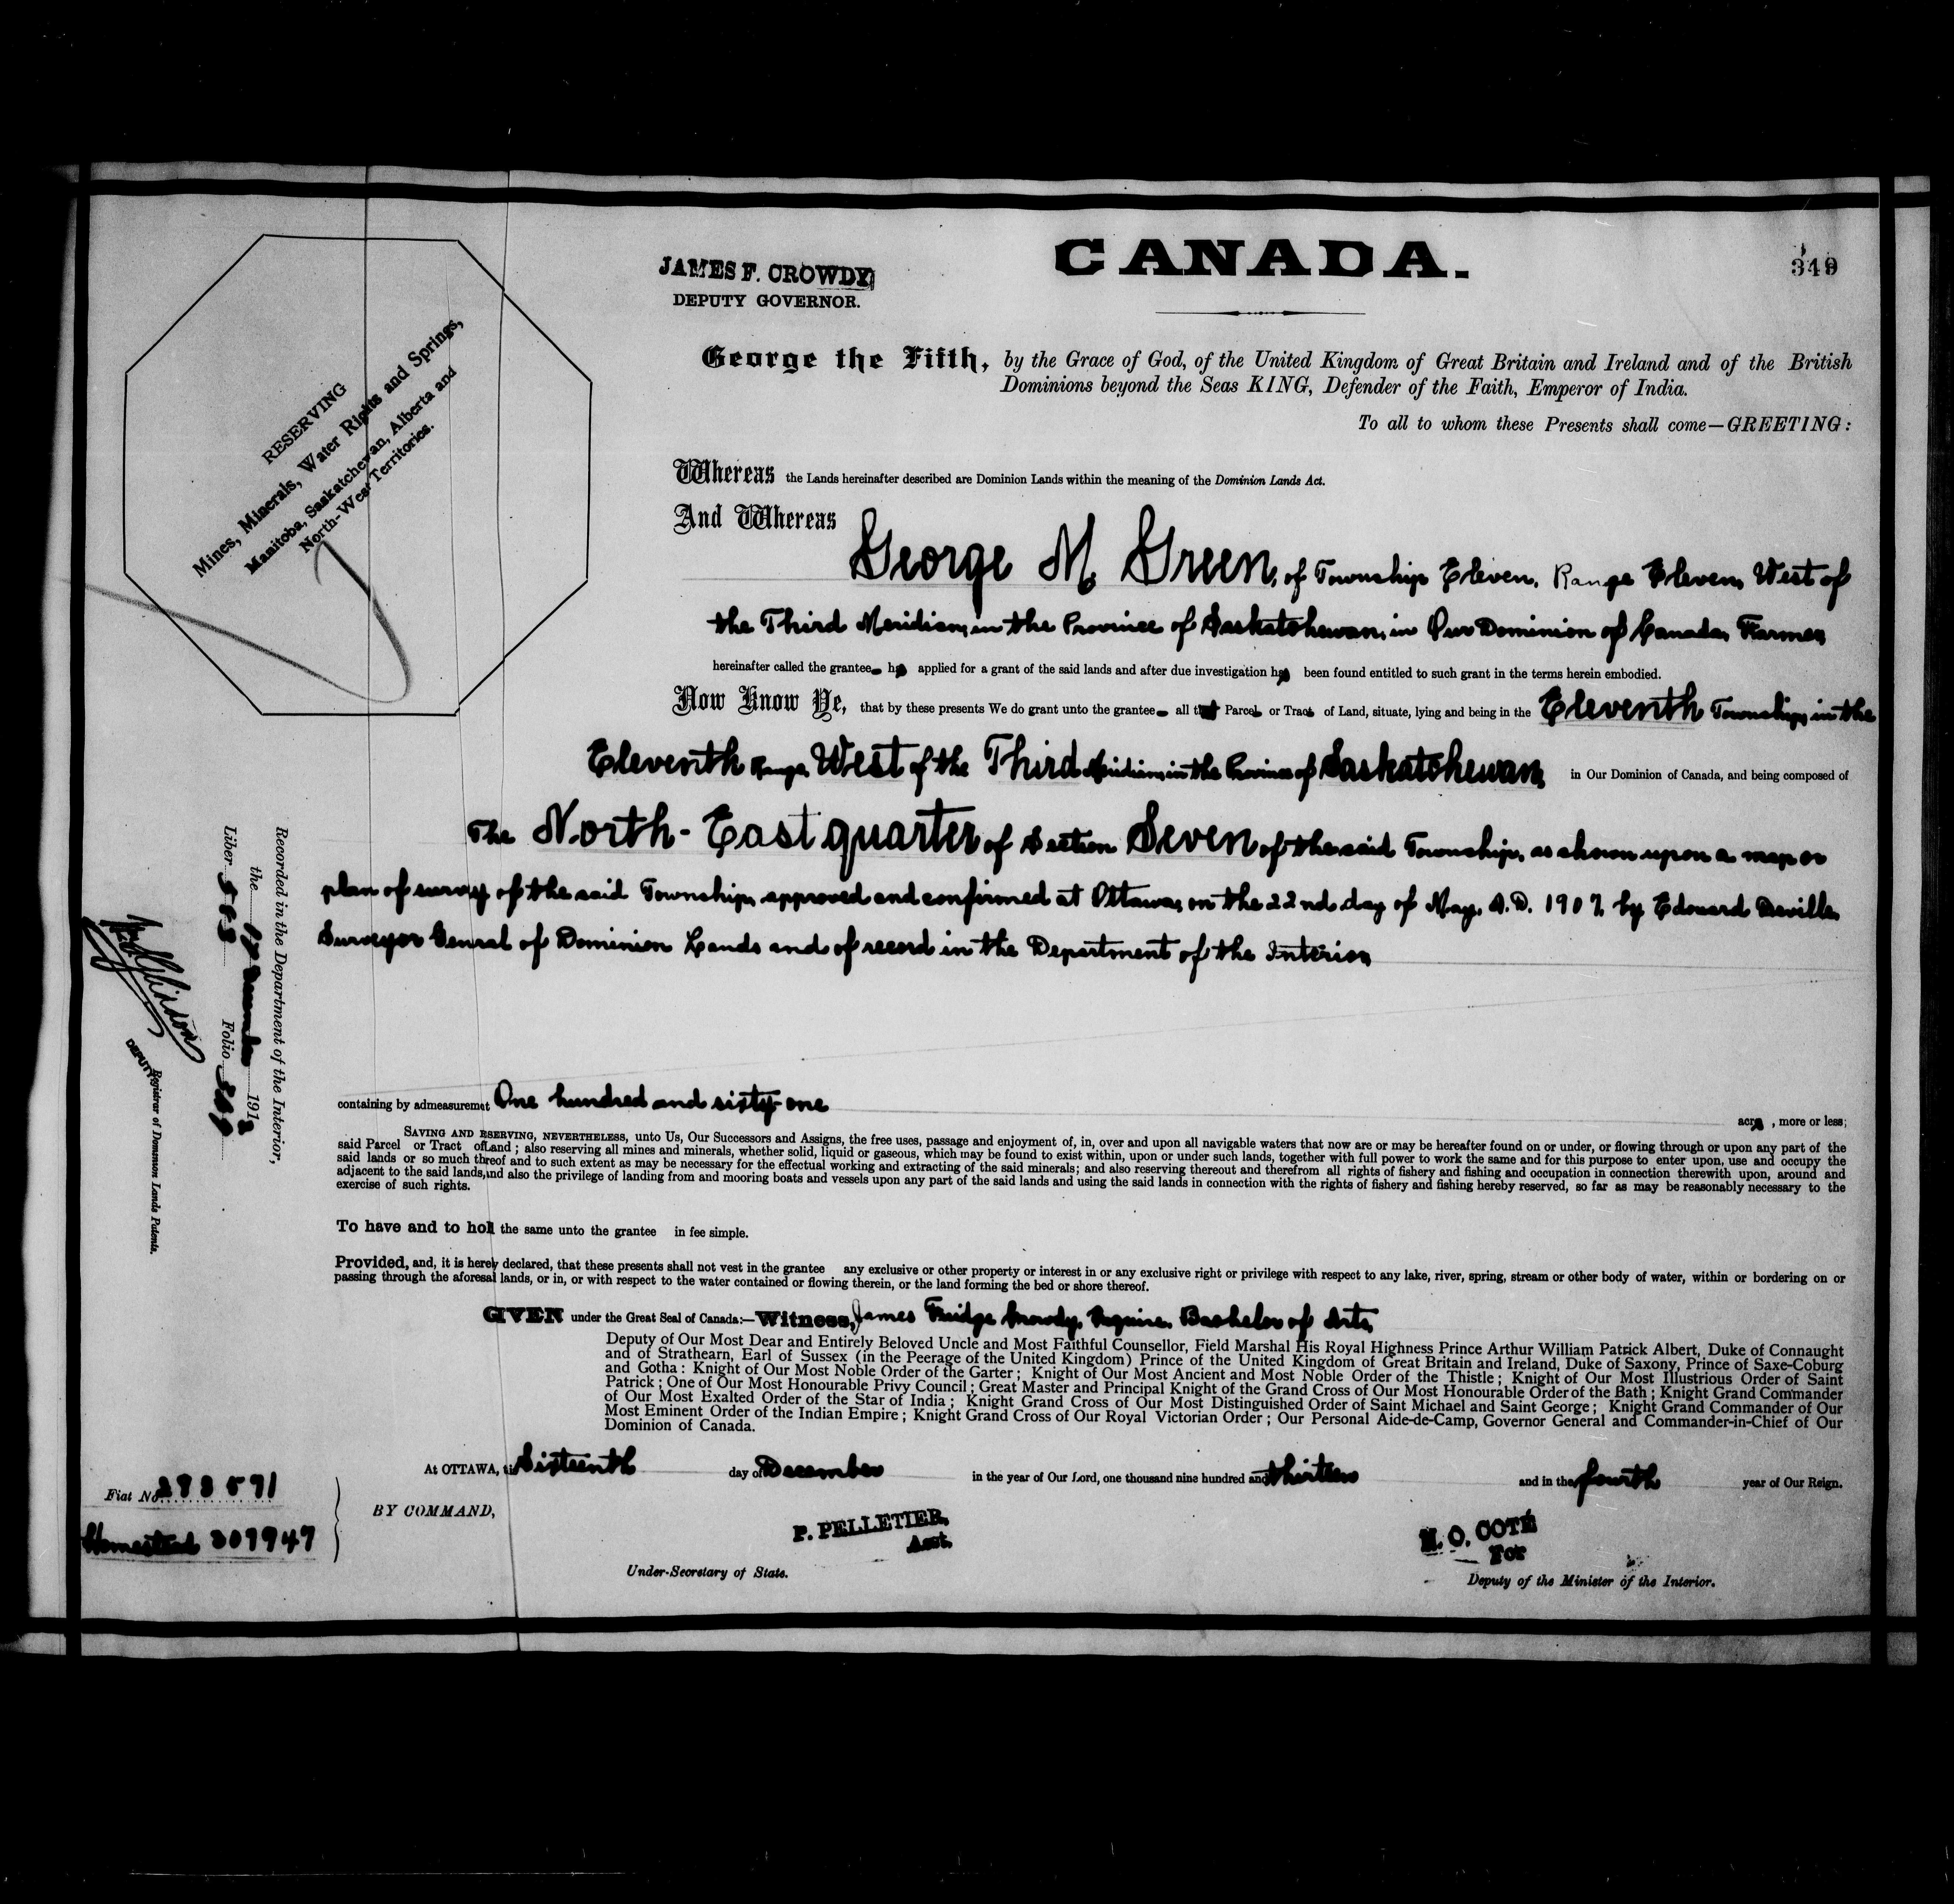 CANADA.
349
JAMES F. CROWDY
DEPUTY GOVERNOR.
RESERVING
Mines, Minerals, Water Rights and Springs,
Manitoba, Saskatchewan, Alberta and
North-West Territories.
George the Fifth, by the Grace of God, of the United Kingdom of Great Britain and Ireland and of the British
Dominions beyond the Seas KING, Defender of the Faith, Emperor of India.
To all to whom these Presents shall come—GREETING:
Whereas the Lands hereinafter described are Dominion Lands within the meaning of the Dominion Lands Act.
And Whereas
George M. Green, of Township Eleven, Range Eleven, West of
the Third Meridian, in the Province of Saskatchewan, in Our Dominion of Canada, Farmer,
hereinafter called the grantee has applied for a grant of the said lands and after due investigation has been found entitled to such grant in the terms herein embodied.
Now Know Ye, that by these presents We do grant unto the grantee all that Parcel or Tract of Land, situate, lying and being in the Eleventh Township, in the
Eleventh Range, West of the Third Meridian, in the Province of Saskatchewan, in Our Dominion of Canada, and being composed of
The North-East quarter of Section Seven of the said Township, as shown upon a map or
plan of survey of the said Township, approved and confirmed at Ottawa, on the 22nd day of May, A.D. 1907, by Edouard Deville,
Surveyor General of Dominion Lands and of record in the Department of the Interior,
containing by admeasuremet One hundred and sixty-one acres, more or less;
SAVING AND RSERVING, NEVERTHELESS, unto Us, Our Successors and Assigns, the free uses, passage and enjoyment of, in, over and upon all navigable waters that now are or may be hereafter found on or under, or flowing through or upon any part of the
said Parcel or Tract of Land; also reserving all mines and minerals, whether solid, liquid or gaseous, which may be found to exist within, upon or under such lands, together with full power to work the same and for this purpose to enter upon, use and occupy the
said lands or so much threof and to such extent as may be necessary for the effectual working and extracting of the said minerals; and also reserving thereout and therefrom all rights of fishery and fishing and occupation in connection therewith upon, around and
adjacent to the said lands, and also the privilege of landing from and mooring boats and vessels upon any part of the said lands and using the said lands in connection with the rights of fishery and fishing hereby reserved, so far as may be reasonably necessary to the
exercise of such rights.
To have and to hold the same unto the grantee in fee simple.
Provided, and, it is herely declared, that these presents shall not vest in the grantee any exclusive or other property or interest in or any exclusive right or privilege with respect to any lake, river, spring, stream or other body of water, within or bordering on or
passing through the aforesai lands, or in, or with respect to the water contained or flowing therein, or the land forming the bed or shore thereof.
GIVEN under the Great Seal of Canada:—Witness, James Fridge Crowdy, Esquire, Bachelor of Arts,
Deputy of Our Most Dear and Entirely Beloved Uncle and Most Faithful Counsellor, Field Marshal His Royal Highness Prince Arthur William Patrick Albert, Duke of Connaught
and of Strathearn, Earl of Sussex (in the Peerage of the United Kingdom) Prince of the United Kingdom of Great Britain and Ireland, Duke of Saxony, Prince of Saxe-Coburg
and Gotha: Knight of Our Most Noble Order of the Garter; Knight of Our Most Ancient and Most Noble Order of the Thistle; Knight of Our Most Illustrious Order of Saint
Patrick; One of Our Most Honourable Privy Council; Great Master and Principal Knight of the Grand Cross of Our Most Honourable Order of the Bath; Knight Grand Commander
of Our Most Exalted Order of the Star of India; Knight Grand Cross of Our Most Distinguished Order of Saint Michael and Saint George; Knight Grand Commander of Our
Most Eminent Order of the Indian Empire; Knight Grand Cross of Our Royal Victorian Order; Our Personal Aide-de-Camp, Governor General and Commander-in-Chief of Our
Dominion of Canada.
At OTTAWA, this Sixteenth day of December in the year of Our Lord, one thousand nine hundred and thirteen and in the fourth year of Our Reign.
BY COMMAND,
P. PELLETIER,
Act.
Under-Secretary of State.
N. O. COTÉ
For
Deputy of the Minister of the Interior.
Fiat No. 283591
Homestead 307947
Recorded in the Department of the Interior,
the 17 December 1913
Liber 503 Folio
DEPUTY Registrar of Dominion Lands Patents.